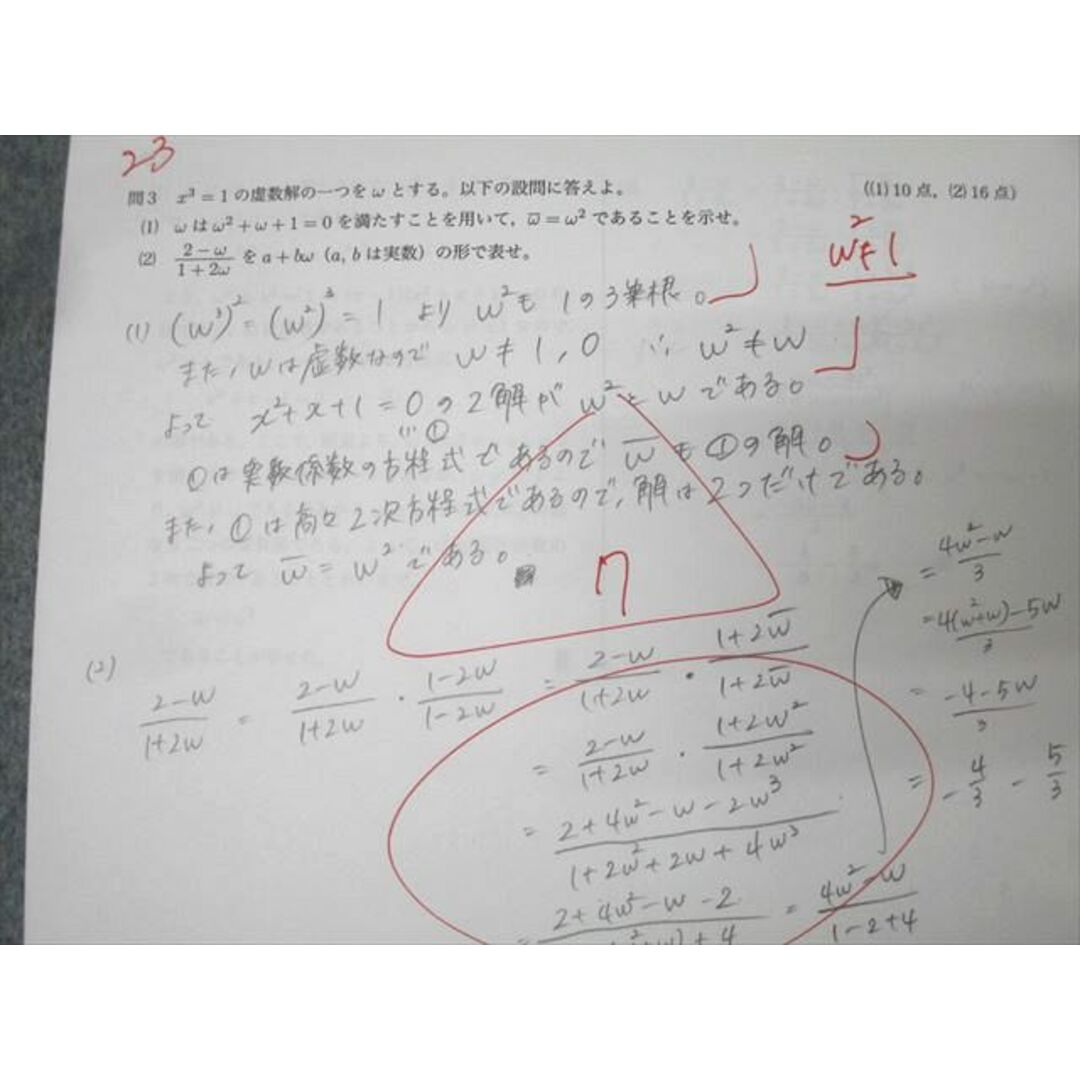 23
問3 x³ = 1 の虚数解の一つを ω とする。以下の設問に答えよ。 ((1) 10 点, (2) 16 点)
(1) ω は ω² + ω + 1 = 0 を満たすことを用いて, ω̅ = ω² であることを示せ。
(2) (2 − ω)/(1 + 2ω) を a + bω (a, b は実数) の形で表せ。
ω² ≠ 1
(1) (ω³)² = (ω²)³ = 1 より ω² も 1 の 3 乗根。
また, ω は虚数なので ω ≠ 1, 0 ∴ ω² ≠ ω
よって x² + x + 1 = 0 の 2 解が ω² と ω である。
… ①
① は実数係数の方程式であるので ω̅ も ① の解。
また, ① は高々 2 次方程式であるので, 解は 2 つだけである。
よって ω̅ = ω² である。
7
(2) (2−ω)/(1+2ω) = (2−ω)/(1+2ω) · (1−2ω)/(1−2ω) = (2−ω)/(1+2ω) · (1+2ω̅)/(1+2ω̅)
= (2−ω)/(1+2ω) · (1+2ω²)/(1+2ω²)
= (2+4ω²−ω−2ω³)/(1+2ω²+2ω+4ω³)
= (2+4ω²−ω−2)/( ω²+ω)+4) = (4ω²−ω)/(1−2+4)
= (4ω²−ω)/3
= (4(ω²+ω)−5ω)/3
= (−4−5ω)/3
= −4/3 − 5/3